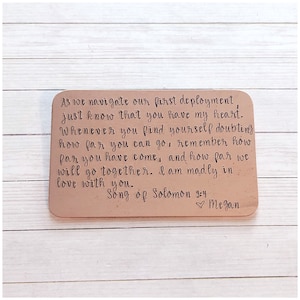 As we navigate our first deployment,
just know that you have my heart.
Whenever you find yourself doubting
how far you can go, remember how
far you have come, and how far we
will go together. I am madly in
love with you.
Song of Solomon 3:4
♡ Megan